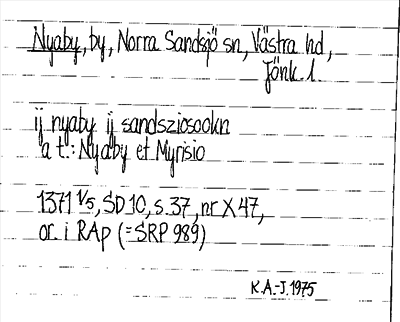 Nyaby, by, Norra Sandsjö sn, Västra hd,
Jönk. l.
ij nyaby ij sandsziosookn
a t.: Nyaby et Myrisio
1371 1/5, SD 10, s. 37, nr X 47,
or. i RAp (=SRP 989)
K.A.-J. 1975